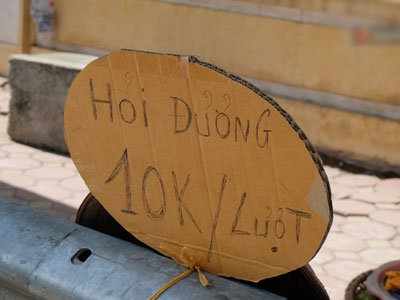 HỏI ĐƯỜNG
10K/LƯỢT